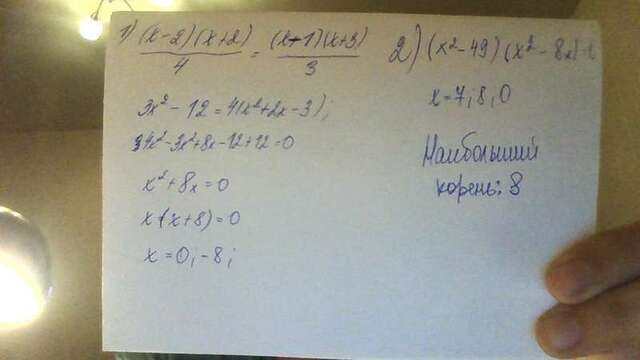 1) (x-2)(x+2)/4 = (x-1)(x+3)/3
3x²-12=4(x²+2x-3);
4x²-3x²+8x-12+12=0
x²+8x=0
x(x+8)=0
x=0;-8;
2) (x²-49)(x²-8x)
x=7,8,0
Наибольший
корень: 8